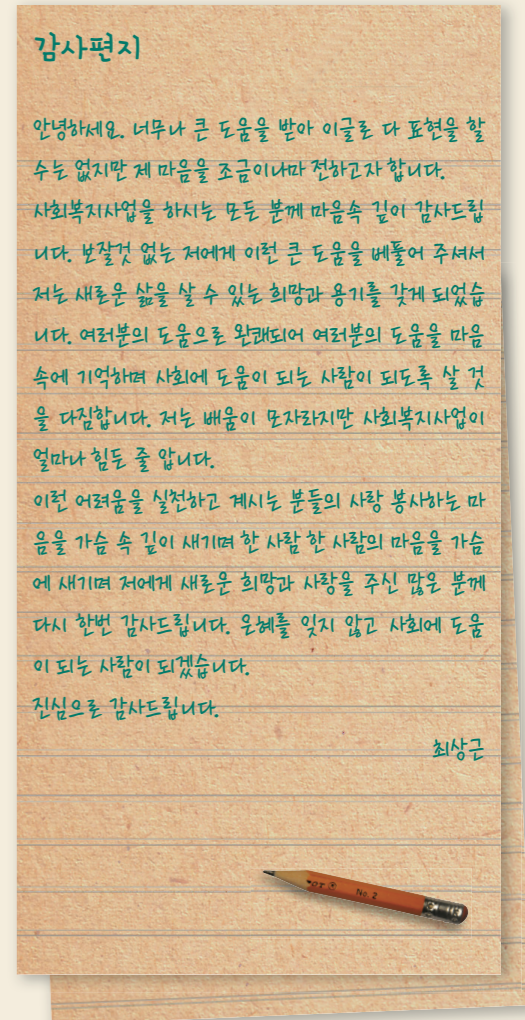 감사편지
안녕하세요. 너무나 큰 도움을 받아 이글로 다 표현을 할
수는 없지만 제 마음을 조금이나마 전하고자 합니다.
사회복지사업을 하시는 모든 분께 마음속 깊이 감사드립
니다. 보잘것 없는 저에게 이런 큰 도움을 베풀어 주셔서
저는 새로운 삶을 살 수 있는 희망과 용기를 갖게 되었습
니다. 여러분의 도움으로 완쾌되어 여러분의 도움을 마음
속에 기억하며 사회에 도움이 되는 사람이 되도록 살 것
을 다짐합니다. 저는 배움이 모자라지만 사회복지사업이
얼마나 힘든 줄 압니다.
이런 어려움을 실천하고 계시는 분들의 사랑 봉사하는 마
음을 가슴 속 깊이 새기며 한 사람 한 사람의 마음을 가슴
에 새기며 저에게 새로운 희망과 사랑을 주신 많은 분께
다시 한번 감사드립니다. 은혜를 잊지 않고 사회에 도움
이 되는 사람이 되겠습니다.
진심으로 감사드립니다.
최상근
No. 2